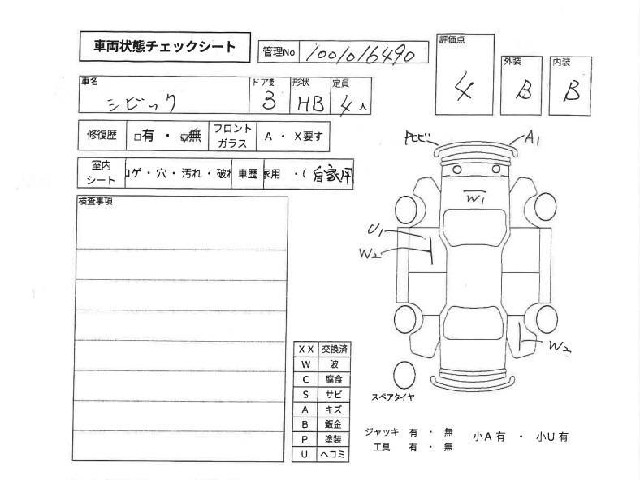 車両状態チェックシート
管理No 1001016490
評価点 4
外装 B
内装 B
車名 シビック
ドア数 3
形状 HB
定員 4人
修復歴 □有・☑無
フロントガラス A・X要す
室内シート コゲ・穴・汚れ・破れ
車歴 家用・( 自家用
検査事項
A1
W1
U1
W2
W2
スペアタイヤ
XX 交換済
W 波
C 腐食
S サビ
A キズ
B 鈑金
P 塗装
U ヘコミ
ジャッキ 有・無
工具 有・無
小A有・小U有